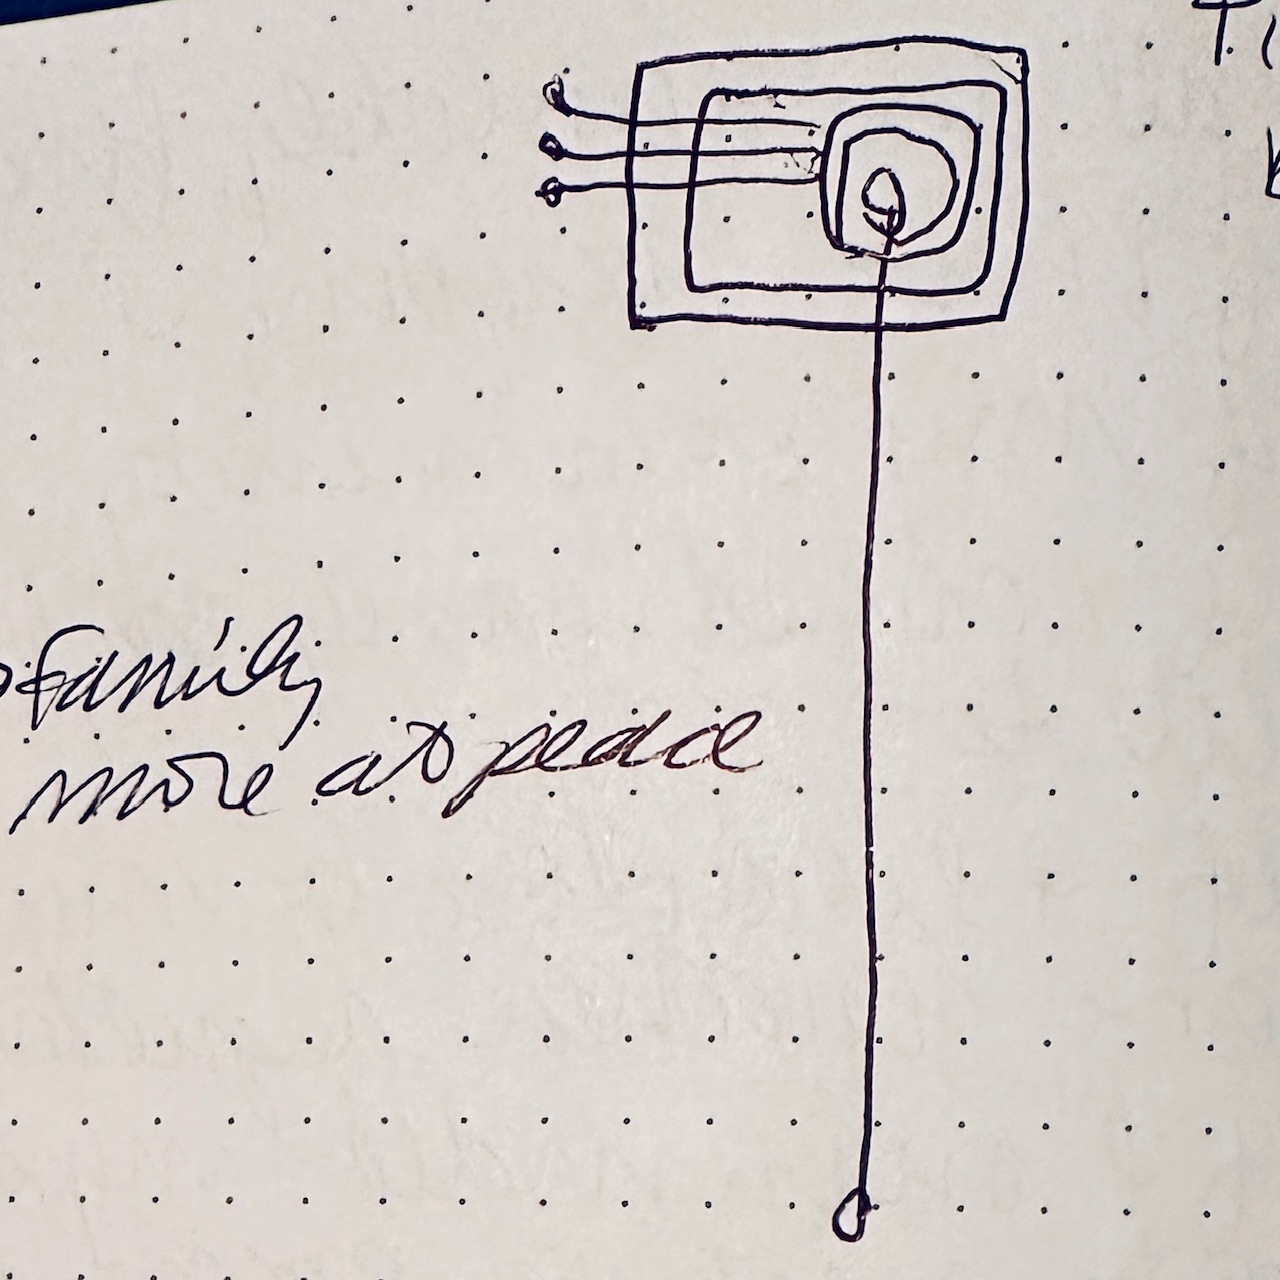 family
more at peace